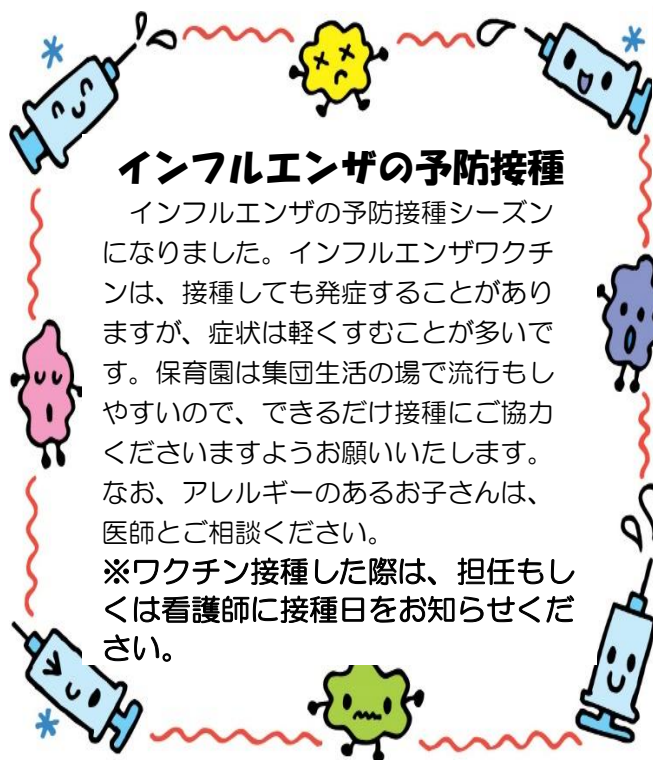 インフルエンザの予防接種
　インフルエンザの予防接種シーズン
になりました。インフルエンザワクチ
ンは、接種しても発症することがあり
ますが、症状は軽くすむことが多いで
す。保育園は集団生活の場で流行もし
やすいので、できるだけ接種にご協力
くださいますようお願いいたします。
なお、アレルギーのあるお子さんは、
医師とご相談ください。
※ワクチン接種した際は、担任もし
くは看護師に接種日をお知らせくだ
さい。